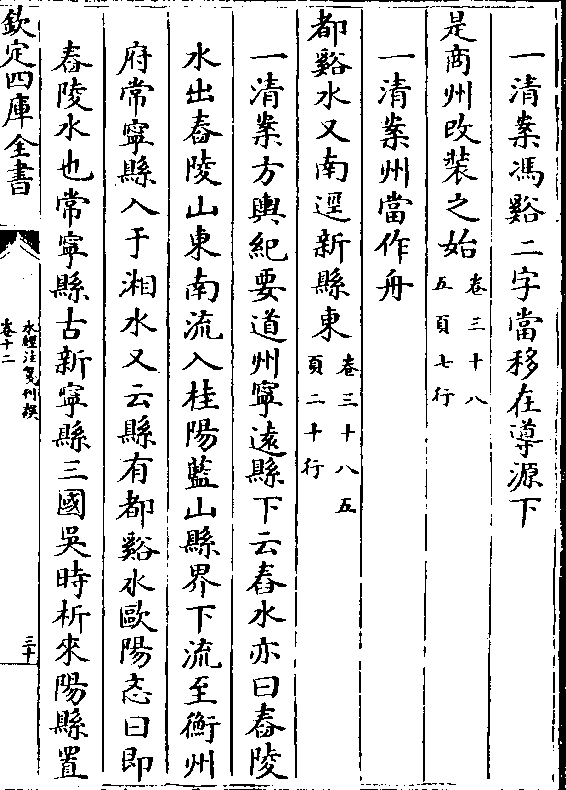 一清案馮谿二字當移在導源下
是商州改裝之始卷三十八五頁七行
一清案州當作舟
都谿水又南逕新縣東卷三十八五頁二十行
一清案方輿紀要道州寧遠縣下云舂水亦曰舂陵
水出舂陵山東南流入桂陽藍山縣界下流至衡州
府常寧縣入于湘水又云縣有都谿水歐陽忞曰即
舂陵水也常寧縣古新寧縣三國吳時析來陽縣置
欽定四庫全書
水經注箋刊誤
卷十二
三十